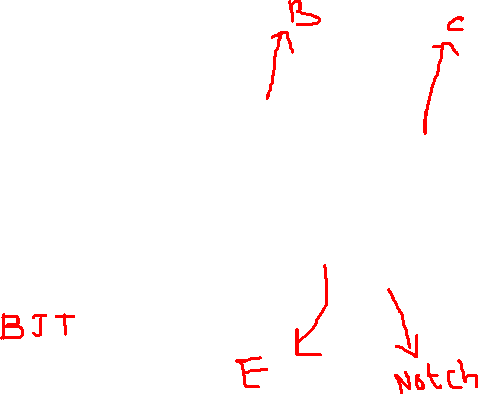 B
C
BJT
E
Notch